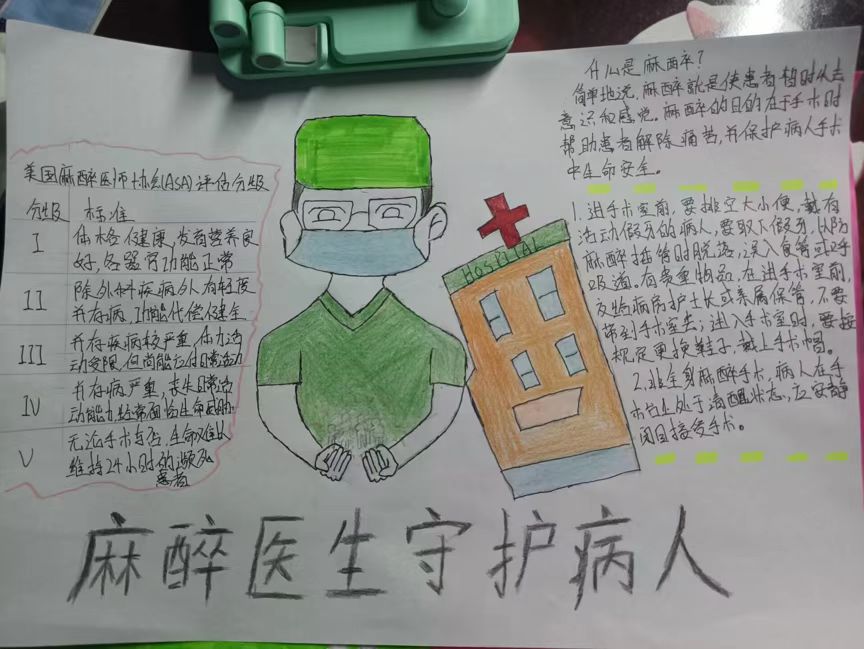 美国麻醉医师协会(ASA)评估分级
分级 标准
I 体格健康,发育营养良
好,各器官功能正常
II 除外科疾病外,有轻度
并存病,功能代偿健全
III 并存疾病较严重,体力活
动受限,但尚能应付日常活动
IV 并存病严重,丧失日常活
动能力,经常面临生命威胁
V 无论手术与否,生命难以
维持24小时的濒死
患者
HOSPITAL
什么是麻醉?
简单地说,麻醉就是使患者暂时失去
意识和感觉。麻醉的目的在于手术时
帮助患者解除痛苦,并保护病人手术
中生命安全。
1.进手术室前,要排空大小便,戴有
活动假牙的病人,要取下假牙,以防
麻醉插管时脱落,误入食管或呼
吸道。有贵重物品,在进手术室前,
交给病房护士长或亲属保管,不要
带到手术室去;进入手术室时,要按
规定更换鞋子,戴上手术帽。
2.非全身麻醉手术,病人在手
术台上处于清醒状态,应安静
闭目接受手术。
麻醉医生守护病人